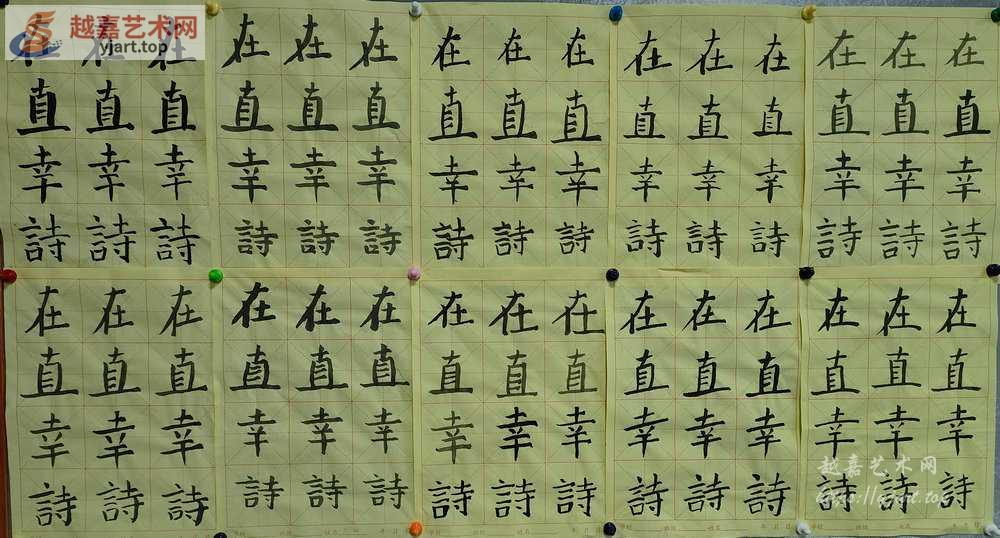 越嘉艺术网
yjart.top
在在在在在在在在在在在在在在在
直直直直直直直直直直直直直直直
幸幸幸幸幸幸幸幸幸幸幸幸幸幸幸
詩詩詩詩詩詩詩詩詩詩詩詩詩詩詩
在在在在在在在在在在在在在在在
直直直直直直直直直直直直直直直
幸幸幸幸幸幸幸幸幸幸幸幸幸幸幸
詩詩詩詩詩詩詩詩詩詩詩詩詩詩詩
越嘉艺术网
https://yjart.top